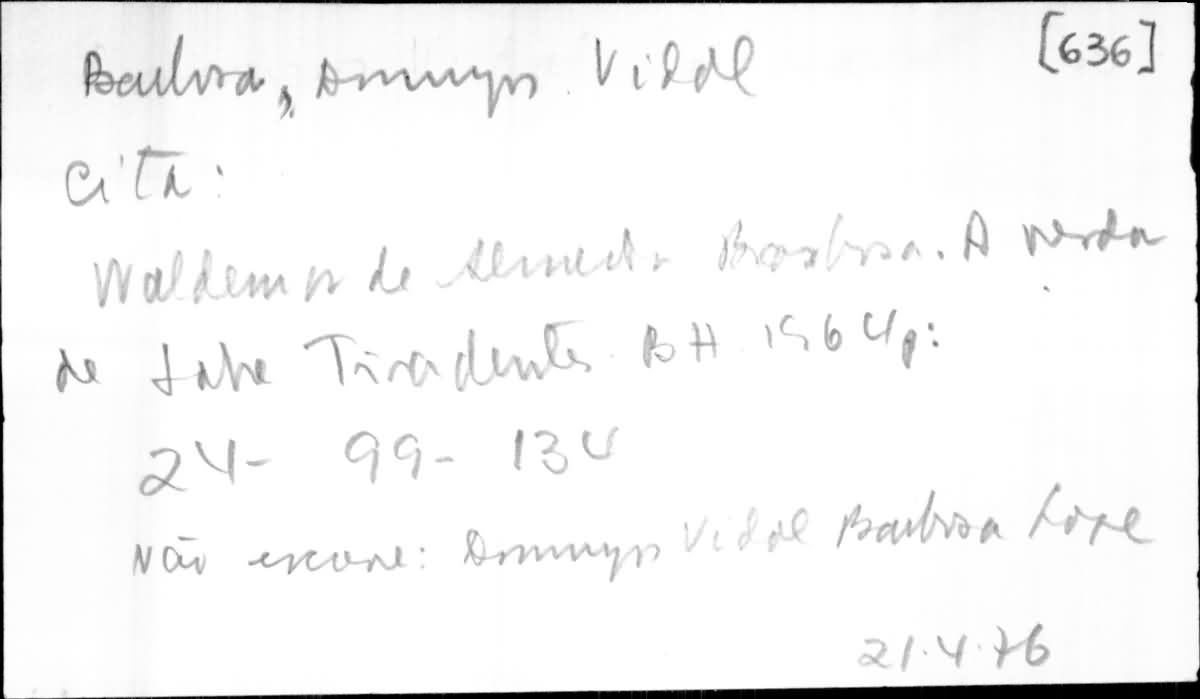 Barbosa, Domingos Vidal [636]
Cita:
Waldemar de Almeida Barbosa. A verda
de sobre Tiradentes. BH. 1964 p:
24- 99- 134
Não escreve: Domingos Vidal Barbosa Lage
21.4.76